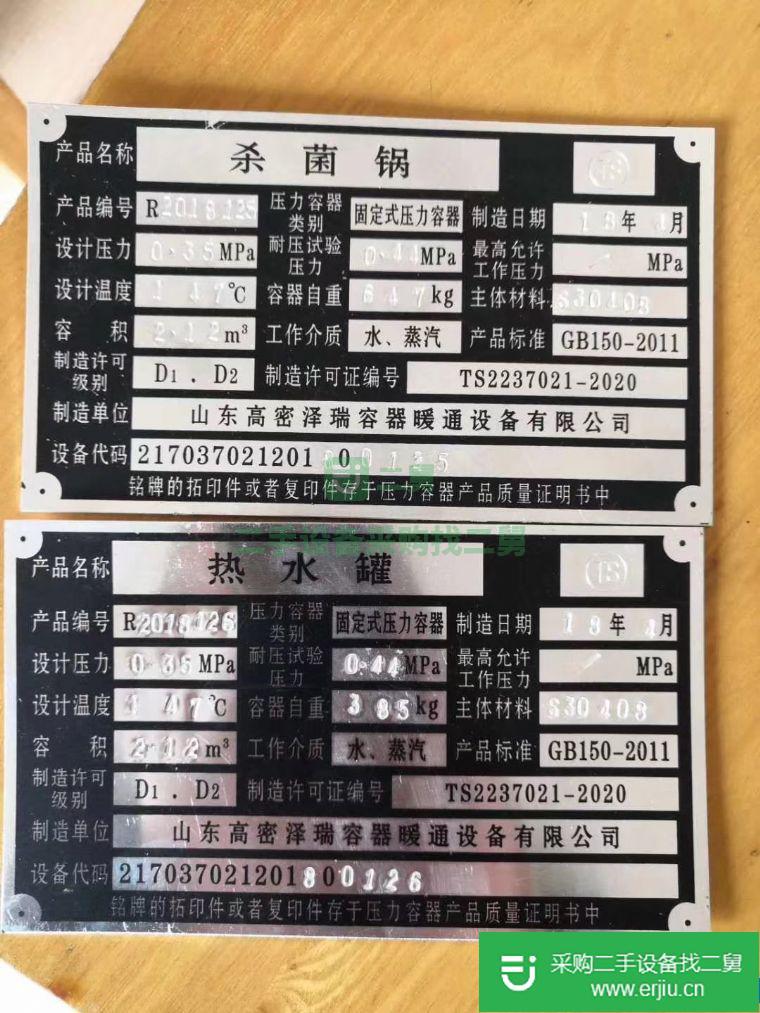 产品名称 杀菌锅 TS
产品编号 R2018125 压力容器类别 固定式压力容器 制造日期 18年4月
设计压力 0.35MPa 耐压试验压力 0.44MPa 最高允许工作压力 / MPa
设计温度 147℃ 容器自重 647kg 主体材料 S30408
容积 2.12m³ 工作介质 水、蒸汽 产品标准 GB150-2011
制造许可级别 D1.D2 制造许可证编号 TS2237021-2020
制造单位 山东高密泽瑞容器暖通设备有限公司
设备代码 217037021201800125
铭牌的拓印件或者复印件存于压力容器产品质量证明书中
二舅
二手设备采购找二舅
产品名称 热水罐 TS
产品编号 R2018126 压力容器类别 固定式压力容器 制造日期 18年4月
设计压力 0.35MPa 耐压试验压力 0.44MPa 最高允许工作压力 / MPa
设计温度 147℃ 容器自重 385kg 主体材料 S30408
容积 2.12m³ 工作介质 水、蒸汽 产品标准 GB150-2011
制造许可级别 D1.D2 制造许可证编号 TS2237021-2020
制造单位 山东高密泽瑞容器暖通设备有限公司
设备代码 217037021201800126
铭牌的拓印件或者复印件存于压力容器产品质量证明书中
采购二手设备找二舅
www.erjiu.cn